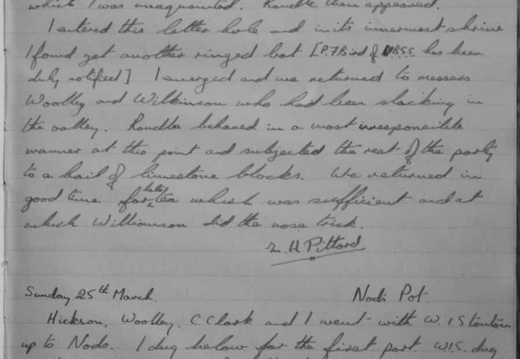 which I was unacquainted. Randle then appeared.
I entered this latter hole and in its innermost shrine
I found yet another ringed bat [P.F. Bird of UBSS has been
duly notified] I emerged and we returned to messrs
Woolley and Wilkinson who had been slacking in
the valley. Randle behaved in a most irresponsible
manner at this point and subjected the rest of the party
to a hail of limestone blocks. We returned in
good time for late tea which was sufficient and at
which Williamson did the nose trick.
L. H. Pittard
Sunday 25th March. Nods Pot.
Hickson, Woolley, C Clark and I went with W. I Stanton
up to Nods. I dug below for the first part. W.I.S. dug